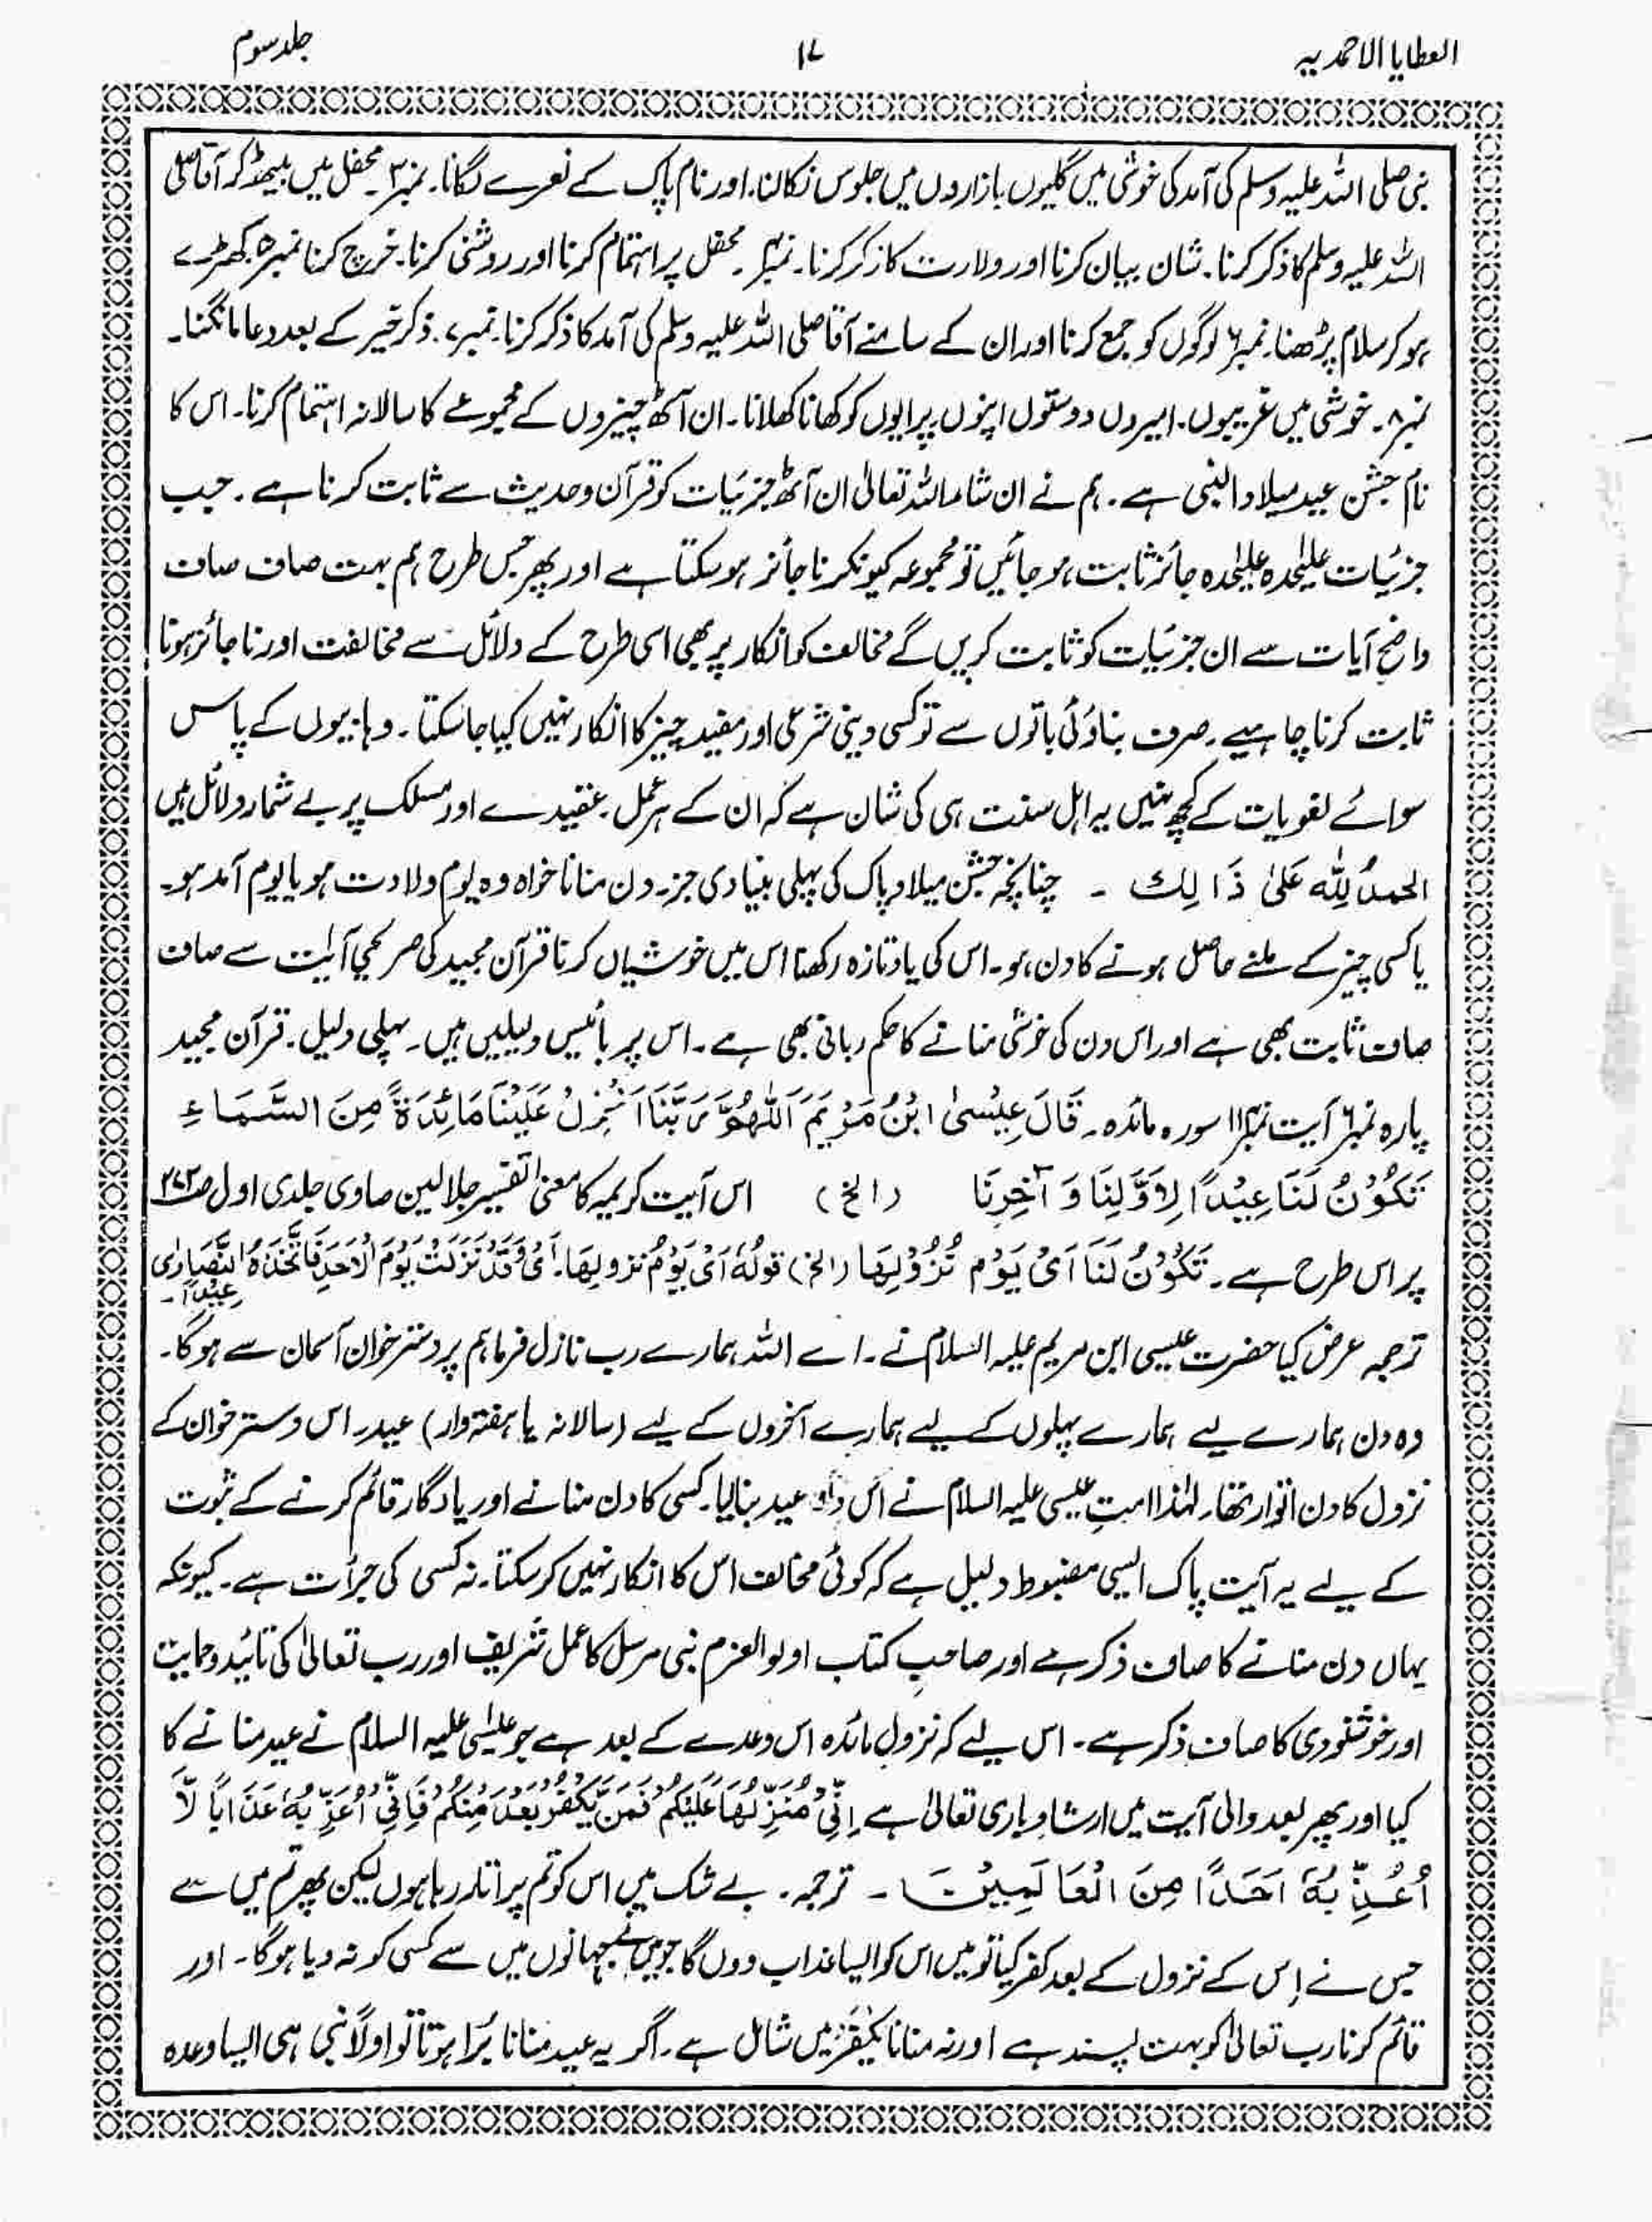 العطایا الاحمدیہ ۱۷ جلد سوم
نبی صلی اللہ علیہ وسلم کی آمد کی خوشی میں گلیوں بازاروں میں جلوس نکالنا۔ اور نام پاک کے نعرے لگانا۔ نمبر۳۔ محفل میں بیٹھ کر آقا صلی
اللہ علیہ وسلم کا ذکر کرنا۔ شان بیان کرنا اور ولادت کا ذکر کرنا۔ نمبر۴۔ محفل پر اہتمام کرنا اور روشنی کرنا۔ خرچ کرنا نمبر۵ کھڑے
ہو کر سلام پڑھنا۔ نمبر۶ لوگوں کو جمع کرنا اور ان کے سامنے آقا صلی اللہ علیہ وسلم کی آمد کا ذکر کرنا۔ نمبر۷۔ ذکر خیر کے بعد دعا مانگنا۔
نمبر۸۔ خوشی میں غریبوں۔ امیروں دوستوں اپنوں پرایوں کو کھانا کھلانا۔ ان آٹھ چیزوں کے مجموعے کا سالانہ اہتمام کرنا۔ اس کا
نام جشن عید میلاد النبی ہے۔ ہم نے ان شاء اللہ تعالیٰ ان آٹھ جزئیات کو قرآن و حدیث سے ثابت کرنا ہے۔ جب
جزئیات علیٰحدہ علیٰحدہ جائز ثابت ہو جائیں تو مجموعہ کیونکر ناجائز ہو سکتا ہے اور پھر جس طرح ہم بہت صاف صاف
واضح آیات سے ان جزئیات کو ثابت کریں گے مخالف کو انکار پر بھی اسی طرح کے دلائل سے مخالفت اور ناجائز ہونا
ثابت کرنا چاہیے۔ صرف بناوٹی باتوں سے تو کسی دینی شرعی اور مفید چیز کا انکار نہیں کیا جا سکتا۔ وہابیوں کے پاس
سوائے لغویات کے کچھ نہیں یہ اہل سنت ہی کی شان ہے کہ ان کے ہر عمل۔ عقیدے اور مسلک پر بے شمار دلائل ہیں
الحمدُ لِلّٰه عَلیٰ ذَالِك ۔ چنانچہ جشن میلاد پاک کی پہلی بنیادی جز۔ دن منانا خواہ وہ یوم ولادت ہو یا یوم آمد ہو۔
یا کسی چیز کے ملنے حاصل ہونے کا دن ہو۔ اس کی یاد تازہ رکھنا اس میں خوشیاں کرنا قرآن مجید کی صریحی آیت سے صاف
صاف ثابت بھی ہے اور اس دن کی خوشی منانے کا حکم ربانی بھی ہے۔ اس پر بائیس دلیلیں ہیں۔ پہلی دلیل۔ قرآن مجید
پارہ نمبر۶ آیت نمبر۱۱۴ سورہ مائدہ۔ قَالَ عِیْسٰی ابْنُ مَرْیَمَ اَللّٰهُمَّ رَبَّنَا اَنْزِلْ عَلَیْنَا مَائِدَةً مِنَ السَّمَاءِ
تَکُوْنُ لَنَا عِیْدًا لِاَوَّلِنَا وَ آخِرِنَا (الخ) اس آیت کریمہ کا معنیٰ تفسیر جلالین صاوی جلدی اول ص۲۷۳
پر اس طرح ہے۔ تَکُوْنُ لَنَا اَیْ یَوْم نُزُوْلِهَا (الخ) قولُهٗ اَیْ یَوْمُ نزولِهَا۔ اَیْ وَقَدْ نَزَلَتْ یَوْمَ الْاَحَدِ فَاتَّخَذَهُ النَّصَارٰی
عِیْدًا۔
ترجمہ عرض کیا حضرت عیسیٰ ابن مریم علیہ السلام نے۔ اے اللہ ہمارے رب نازل فرما ہم پر دسترخوان آسمان سے ہوگا۔
وہ دن ہمارے لیے ہمارے پہلوں کے لیے ہمارے آخروں کے لیے (سالانہ یا ہفتہ وار) عید۔ اس دسترخوان کے
نزول کا دن اتوار تھا۔ لہٰذا امتِ عیسیٰ علیہ السلام نے اس کو عید بنا لیا۔ کسی کا دن منانے اور یادگار قائم کرنے کے ثبوت
کے لیے یہ آیت پاک ایسی مضبوط دلیل ہے کہ کوئی مخالف اس کا انکار نہیں کر سکتا۔ نہ کسی کی جرأت ہے۔ کیونکہ
یہاں دن منانے کا صاف ذکر ہے اور صاحبِ کتاب اولوالعزم نبی مرسل کا عمل شریف اور رب تعالیٰ کی تائید و حمایت
اور خوشنودی کا صاف ذکر ہے۔ اس لیے کہ نزول مائدہ اس وعدے کے بعد ہے جو عیسٰی علیہ السلام نے عید منانے کا
کیا اور پھر بعد والی آیت میں ارشاد باری تعالیٰ ہے اِنِّیْ مُنَزِّلُهَا عَلَیْکُمْ فَمَنْ یَّکْفُرْ بَعْدُ مِنْکُمْ فَاِنِّیْ اُعَذِّبُهٗ عَذَابًا لَّا
اُعَذِّبُهٗ اَحَدًا مِنَ الْعَالَمِیْنَ ۔ ترجمہ۔ بے شک میں اس کو تم پر اتار رہا ہوں لیکن پھر تم میں سے
جس نے اِس کے نزول کے بعد کفر کیا تو میں اس کو ایسا عذاب دوں گا جو میں نے جہانوں میں سے کسی کو نہ دیا ہوگا۔ اور
قائم کرنا رب تعالیٰ کو بہت پسند ہے اور نہ منانا یَکْفُرْ میں شامل ہے۔ اگر یہ عید منانا بُرا ہوتا تو اولاً نبی ہی ایسا وعدہ